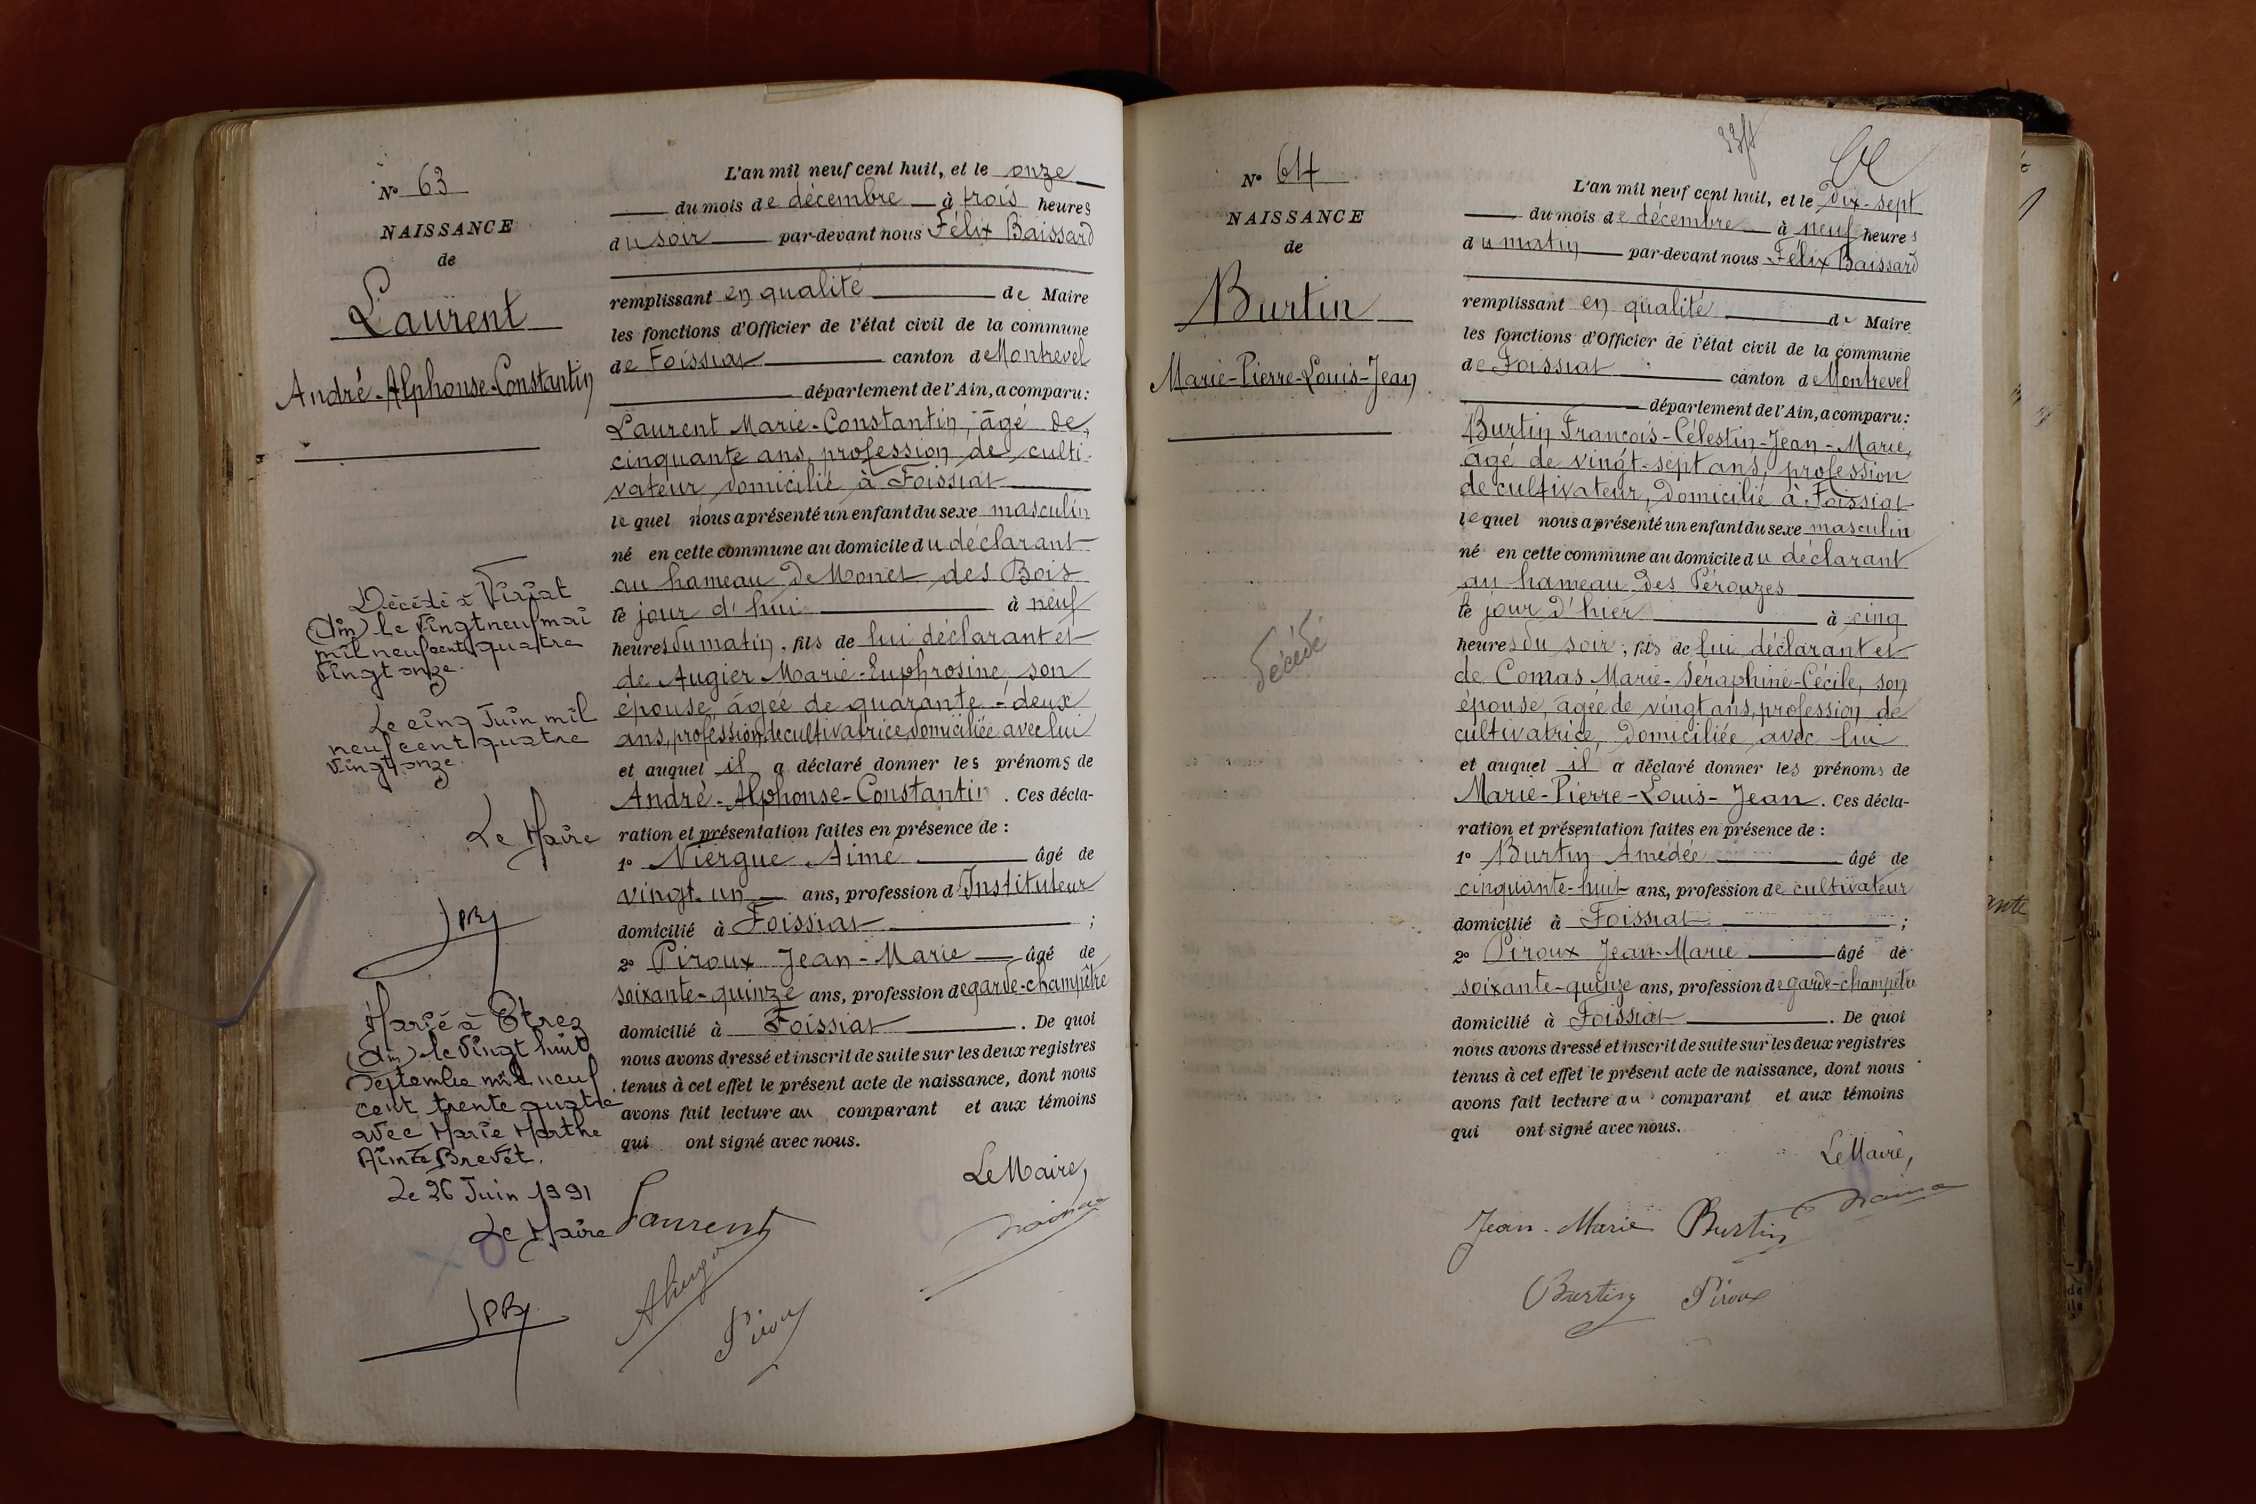 N° 63
NAISSANCE
de
Laurent
André-Alphonse-Constantin
Décédé à Viriat
(Ain) le vingt neuf mai
mil neuf cent quatre
vingt onze.
Le cinq Juin mil
neuf cent quatre
vingt onze.
Le Maire
Marié à Etrez
(Ain) le vingt huit
Septembre mil neuf
cent trente quatre
avec Marie Marthe
Aimée Brevet.
Le 26 Juin 1991
Le Maire
L'an mil neuf cent huit, et le onze
du mois de décembre à trois heures
du soir par-devant nous Félix Baissard
remplissant en qualité de Maire
les fonctions d'Officier de l'état civil de la commune
de Foissiat canton de Montrevel
département de l'Ain, a comparu:
Laurent Marie-Constantin, âgé de
cinquante ans, profession de culti-
vateur domicilié à Foissiat
lequel nous a présenté un enfant du sexe masculin
né en cette commune au domicile du déclarant
au hameau de Monet des Bois
le jour d'hui à neuf
heures du matin, fils de lui déclarant et
de Augier Marie-Euphrosine, son
épouse, âgée de quarante-deux
ans, profession de cultivatrice, domiciliée avec lui
et auquel il a déclaré donner les prénoms de
André-Alphonse-Constantin. Ces décla-
ration et présentation faites en présence de :
1° Aimé âgé de
vingt-un ans, profession d'Instituteur
domicilié à Foissiat ;
2° Piroux Jean-Marie âgé de
soixante-quinze ans, profession de garde-champêtre
domicilié à Foissiat. De quoi
nous avons dressé et inscrit de suite sur les deux registres
tenus à cet effet le présent acte de naissance, dont nous
avons fait lecture au comparant et aux témoins
qui ont signé avec nous.
Le Maire,
Laurent
Piroux
N° 64
NAISSANCE
de
Burtin
Marie-Pierre-Louis-Jean
décédé
L'an mil neuf cent huit, et le Dix-sept
du mois de décembre à neuf heures
du matin par-devant nous Félix Baissard
remplissant en qualité de Maire
les fonctions d'Officier de l'état civil de la commune
de Foissiat canton de Montrevel
département de l'Ain, a comparu:
Burtin François-Célestin-Jean-Marie,
âgé de vingt-sept ans, profession
de cultivateur, domicilié à Foissiat
lequel nous a présenté un enfant du sexe masculin
né en cette commune au domicile du déclarant
au hameau des Pérouzes
le jour d'hier à cinq
heures du soir, fils de lui déclarant et
de Comas Marie-Séraphine-Cécile, son
épouse, âgée de vingt ans, profession de
cultivatrice, domiciliée avec lui
et auquel il a déclaré donner les prénoms de
Marie-Pierre-Louis-Jean. Ces décla-
ration et présentation faites en présence de :
1° Burtin Amédée âgé de
cinquante-huit ans, profession de cultivateur
domicilié à Foissiat ;
2° Piroux Jean-Marie âgé de
soixante-quinze ans, profession de garde-champêtre
domicilié à Foissiat. De quoi
nous avons dressé et inscrit de suite sur les deux registres
tenus à cet effet le présent acte de naissance, dont nous
avons fait lecture au comparant et aux témoins
qui ont signé avec nous.
Le Maire,
Jean-Marie Burtin
Burtin Piroux